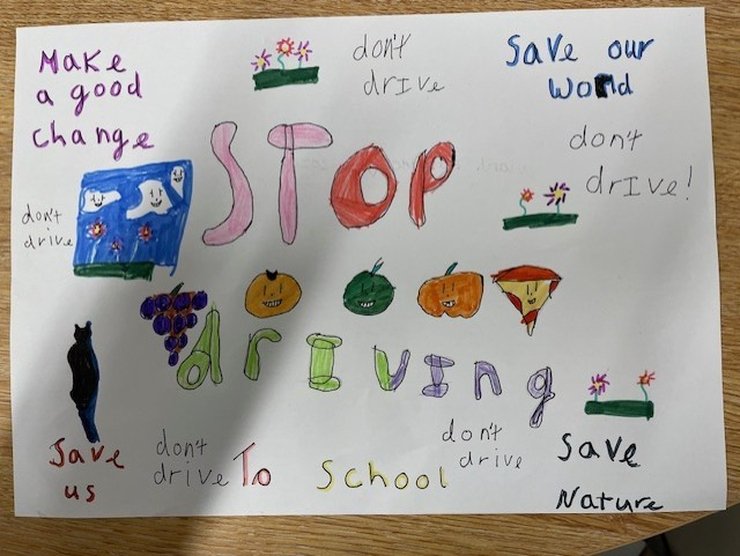 Make
a good
change
don't
drIve
Save our
World
don't
drIve!
don't
drive
STOP
drIvIng
Save
us
don't
drive
To School
don't
drive
Save
Nature